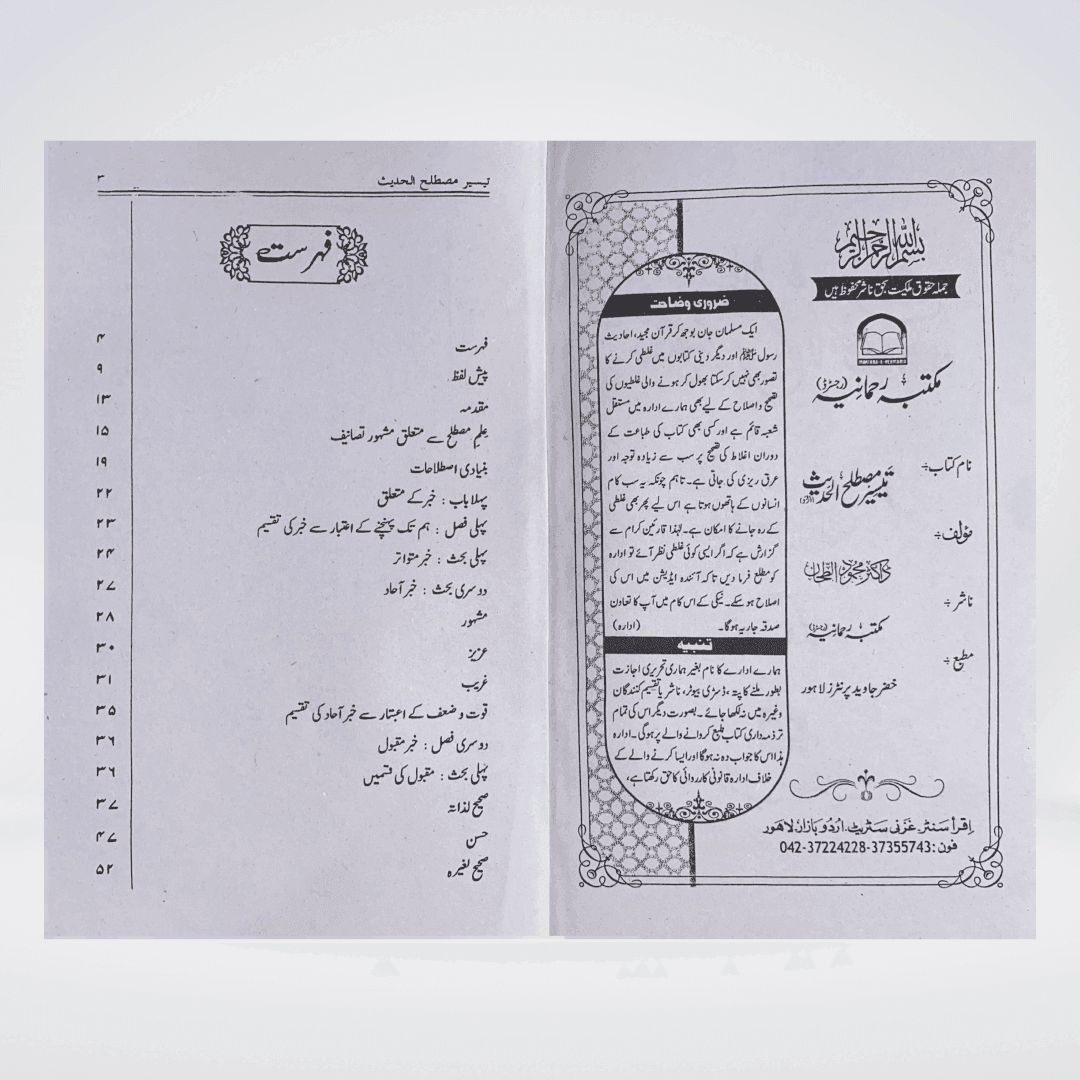 بسم اللہ الرحمن الرحیم
جملہ حقوق ملکیت بحق ناشر محفوظ ہیں
MAKTABA-E-REHMANIA
مکتبہ رحمانیہ (رجسٹرڈ)
نام کتاب÷
تیسیر مصطلح الحدیث (اردو)
مؤلف÷
ڈاکٹر محمود الطحان
ناشر÷
مکتبہ رحمانیہ (رجسٹرڈ)
مطبع÷
خضر جاوید پرنٹرز لاہور
اِقرأ سَنٹر غَزنی سٹریٹ اُردُو بازار لاہور
فون:042-37224228-37355743
ضروری وضاحت
ایک مسلمان جان بوجھ کر قرآن مجید، احادیث
رسول ﷺ اور دیگر دینی کتابوں میں غلطی کرنے کا
تصور بھی نہیں کر سکتا بھول کر ہونے والی غلطیوں کی
تصحیح و اصلاح کے لیے بھی ہمارے ادارہ میں مستقل
شعبہ قائم ہے اور کسی بھی کتاب کی طباعت کے
دوران اغلاط کی تصحیح پر سب سے زیادہ توجہ اور
عرق ریزی کی جاتی ہے۔ تاہم چونکہ یہ سب کام
انسانوں کے ہاتھوں ہوتا ہے اس لیے پھر بھی غلطی
کے رہ جانے کا امکان ہے۔ لہٰذا قارئین کرام سے
گزارش ہے کہ اگر ایسی کوئی غلطی نظر آئے تو ادارہ
کو مطلع فرما دیں تاکہ آئندہ ایڈیشن میں اس کی
اصلاح ہو سکے۔ نیکی کے اس کام میں آپ کا تعاون
صدقہ جاریہ ہوگا۔ (ادارہ)
تنبیہ
ہمارے ادارے کا نام بغیر ہماری تحریری اجازت
بطور ملنے کا پتہ، ڈسٹری بیوٹر، ناشر یا تقسیم کنندگان
وغیرہ میں نہ لکھا جائے۔ بصورت دیگر اس کی تمام
تر ذمہ داری کتاب طبع کروانے والے پر ہوگی۔ ادارہ
ہذا اس کا جواب دہ نہ ہوگا اور ایسا کرنے والے کے
خلاف ادارہ قانونی کارروائی کا حق رکھتا ہے،
تیسیر مصطلح الحدیث ۳
فہرست
فہرست ۴
پیش لفظ ۹
مقدمہ ۱۳
علمِ مصطلح سے متعلق مشہور تصانیف ۱۵
بنیادی اصطلاحات ۱۹
پہلا باب : خبر کے متعلق ۲۲
پہلی فصل : ہم تک پہنچنے کے اعتبار سے خبر کی تقسیم ۲۳
پہلی بحث : خبر متواتر ۲۴
دوسری بحث : خبر آحاد ۲۷
مشہور ۲۸
عزیز ۳۰
غریب ۳۱
قوت و ضعف کے اعتبار سے خبر آحاد کی تقسیم ۳۵
دوسری فصل : خبر مقبول ۳۶
پہلی بحث : مقبول کی قسمیں ۳۶
صحیح لذاتہ ۳۷
حسن ۴۷
صحیح لغیرہ ۵۲